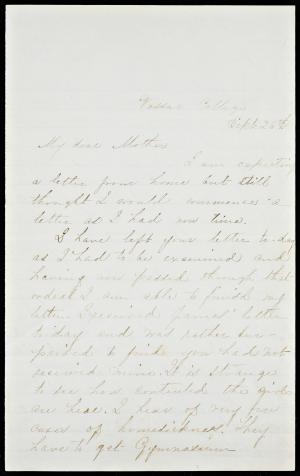 Vassar College
Sept. 26th
My dear Mother
I am expecting
a letter from home but still
thought I would commence a
letter as I had now time.
I have left your letter to-day
as I had to be examined and
having now passed through that
ordeal I am able to finish my
letter. I received James' letter
to day and was rather sur-
prised to find you had not
received mine. It is strange
to see how contented the girls
are here. I hear of very few
cases of homesickness. They
have to get Gymnasium